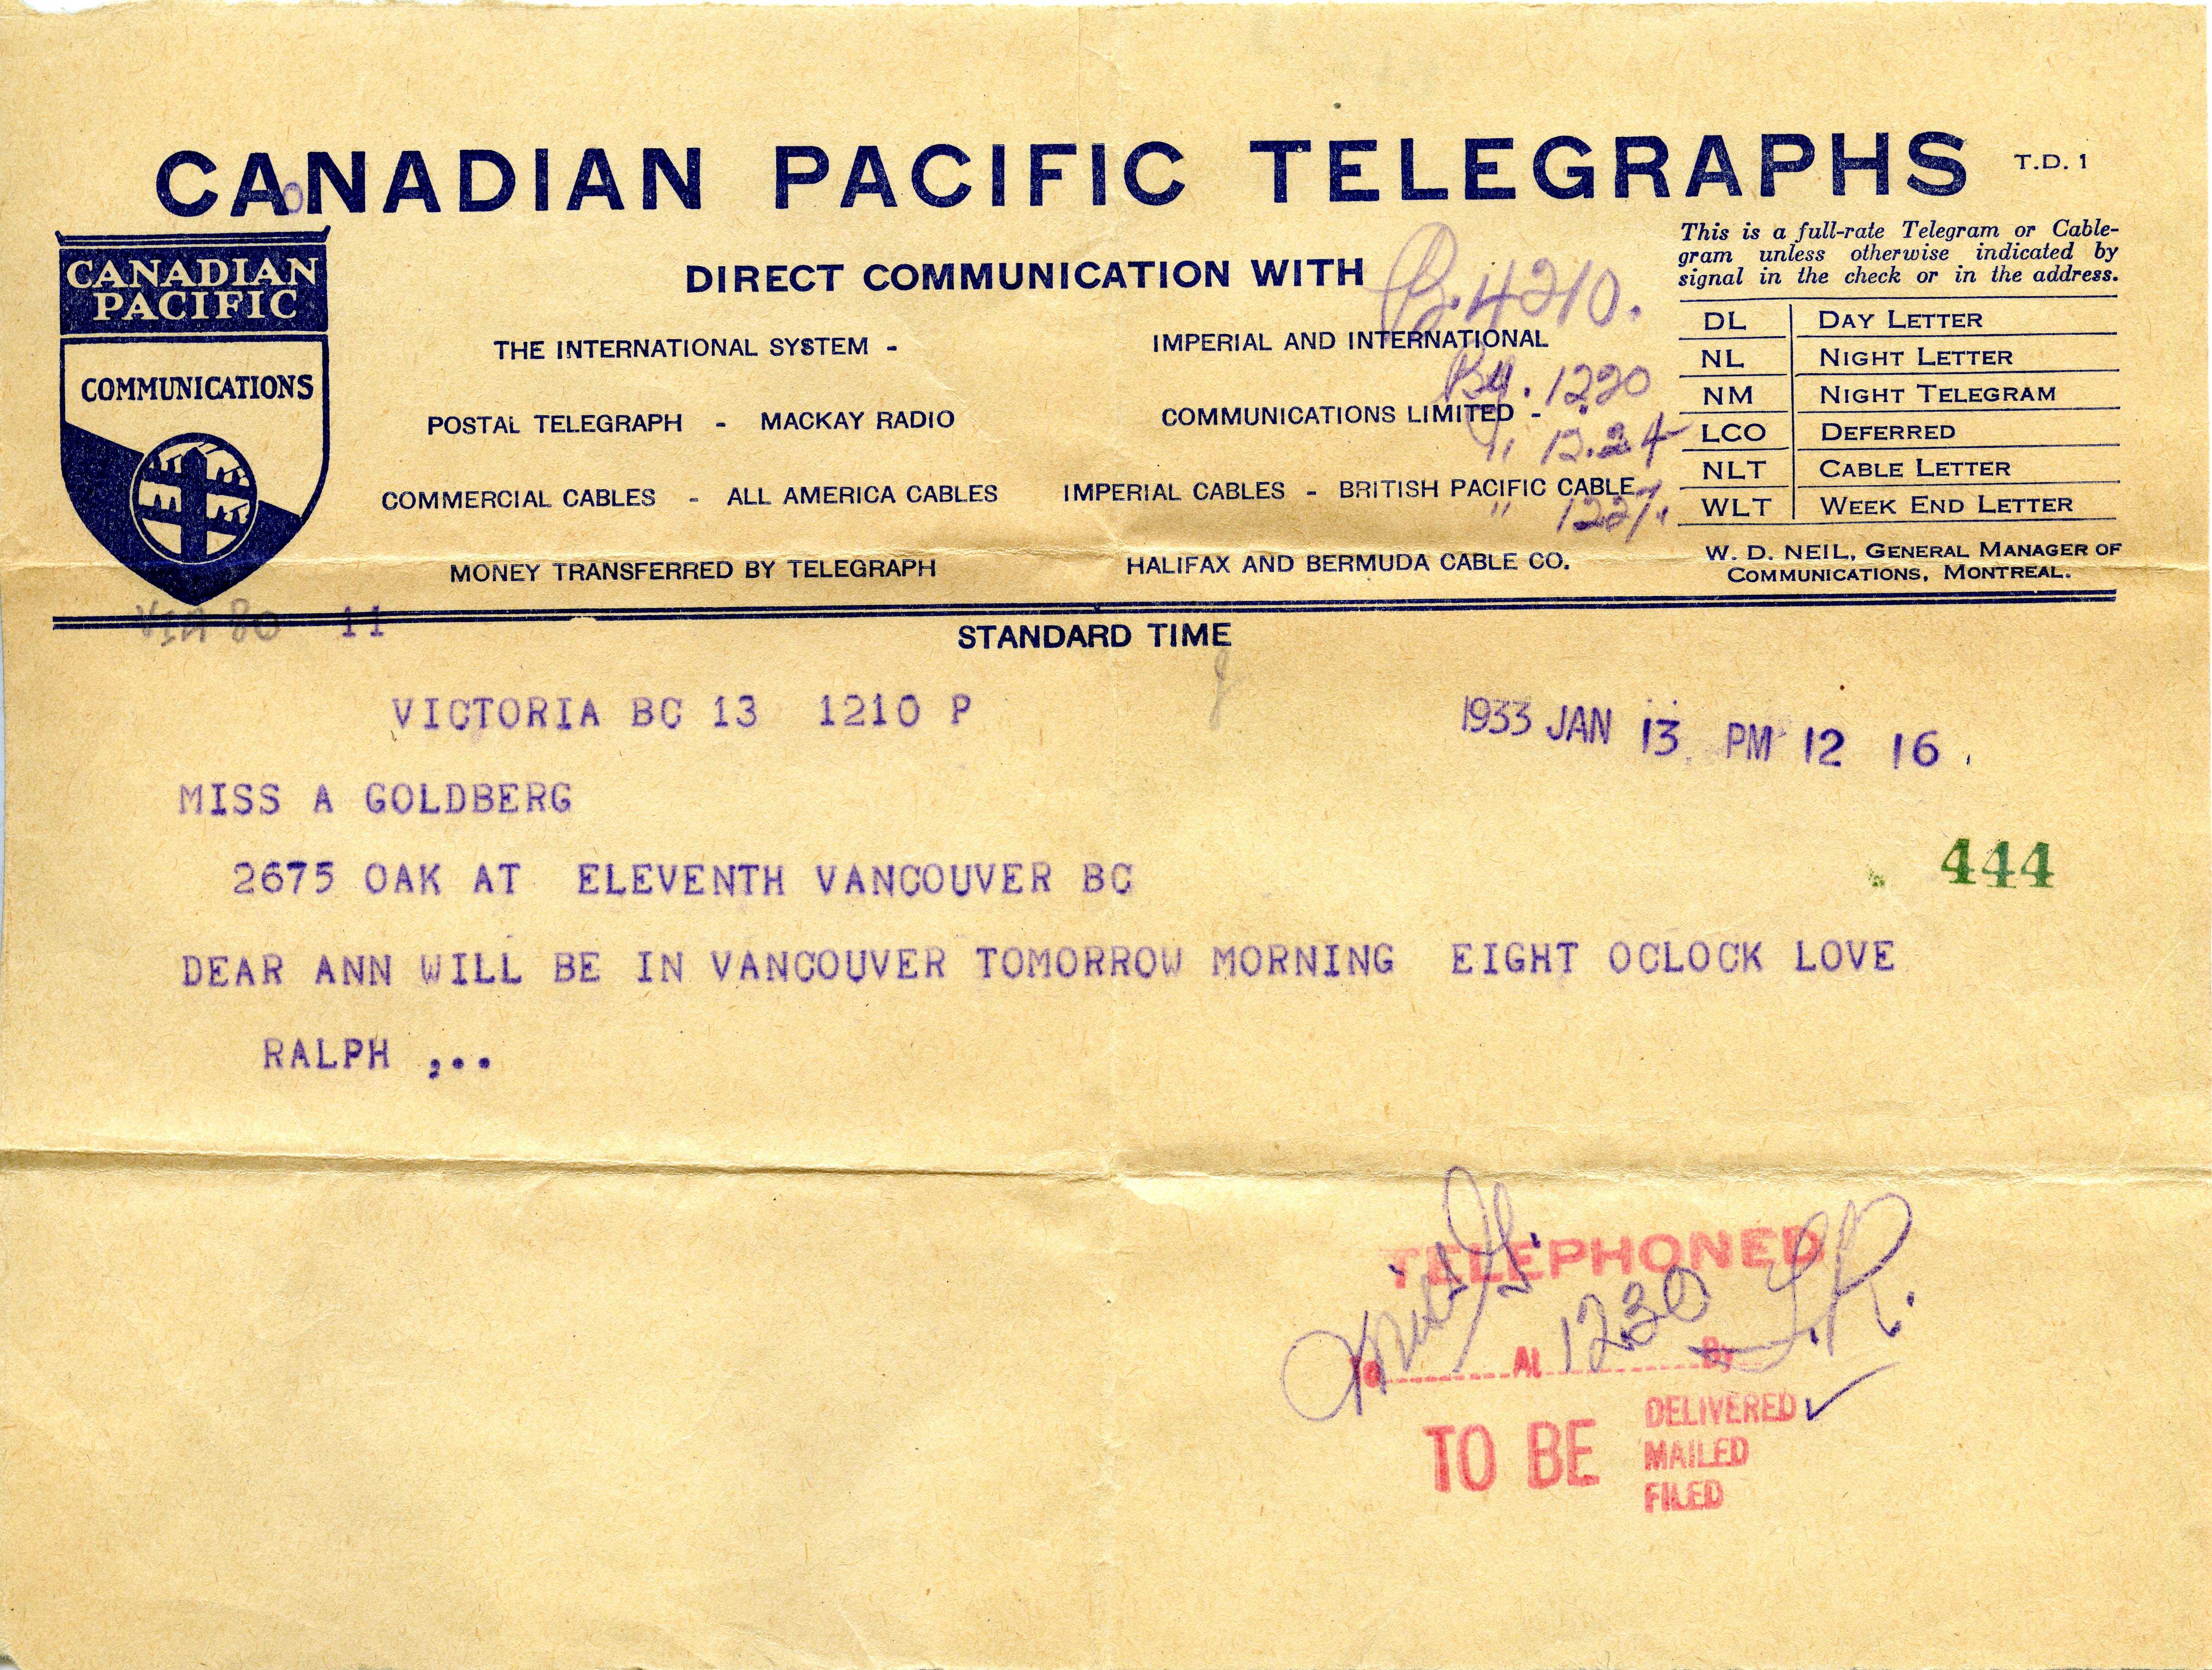 CANADIAN PACIFIC TELEGRAPHS T.D. 1
CANADIAN
PACIFIC
COMMUNICATIONS
DIRECT COMMUNICATION WITH
THE INTERNATIONAL SYSTEM -
POSTAL TELEGRAPH - MACKAY RADIO
COMMERCIAL CABLES - ALL AMERICA CABLES
MONEY TRANSFERRED BY TELEGRAPH
IMPERIAL AND INTERNATIONAL
COMMUNICATIONS LIMITED -
IMPERIAL CABLES - BRITISH PACIFIC CABLE
HALIFAX AND BERMUDA CABLE CO.
B.4210.
By. 1220
" 12.24
" 1227.
This is a full-rate Telegram or Cable-
gram unless otherwise indicated by
signal in the check or in the address.
DL DAY LETTER
NL NIGHT LETTER
NM NIGHT TELEGRAM
LCO DEFERRED
NLT CABLE LETTER
WLT WEEK END LETTER
W. D. NEIL, GENERAL MANAGER OF
COMMUNICATIONS, MONTREAL.
VIA 80 11
STANDARD TIME
VICTORIA BC 13 1210 P
1933 JAN 13 PM 12 16
MISS A GOLDBERG
2675 OAK AT ELEVENTH VANCOUVER BC
444
DEAR ANN WILL BE IN VANCOUVER TOMORROW MORNING EIGHT OCLOCK LOVE
RALPH ,..
TELEPHONED
To Miss G. At 1230 By L.R.
TO BE
DELIVERED ✓
MAILED
FILED